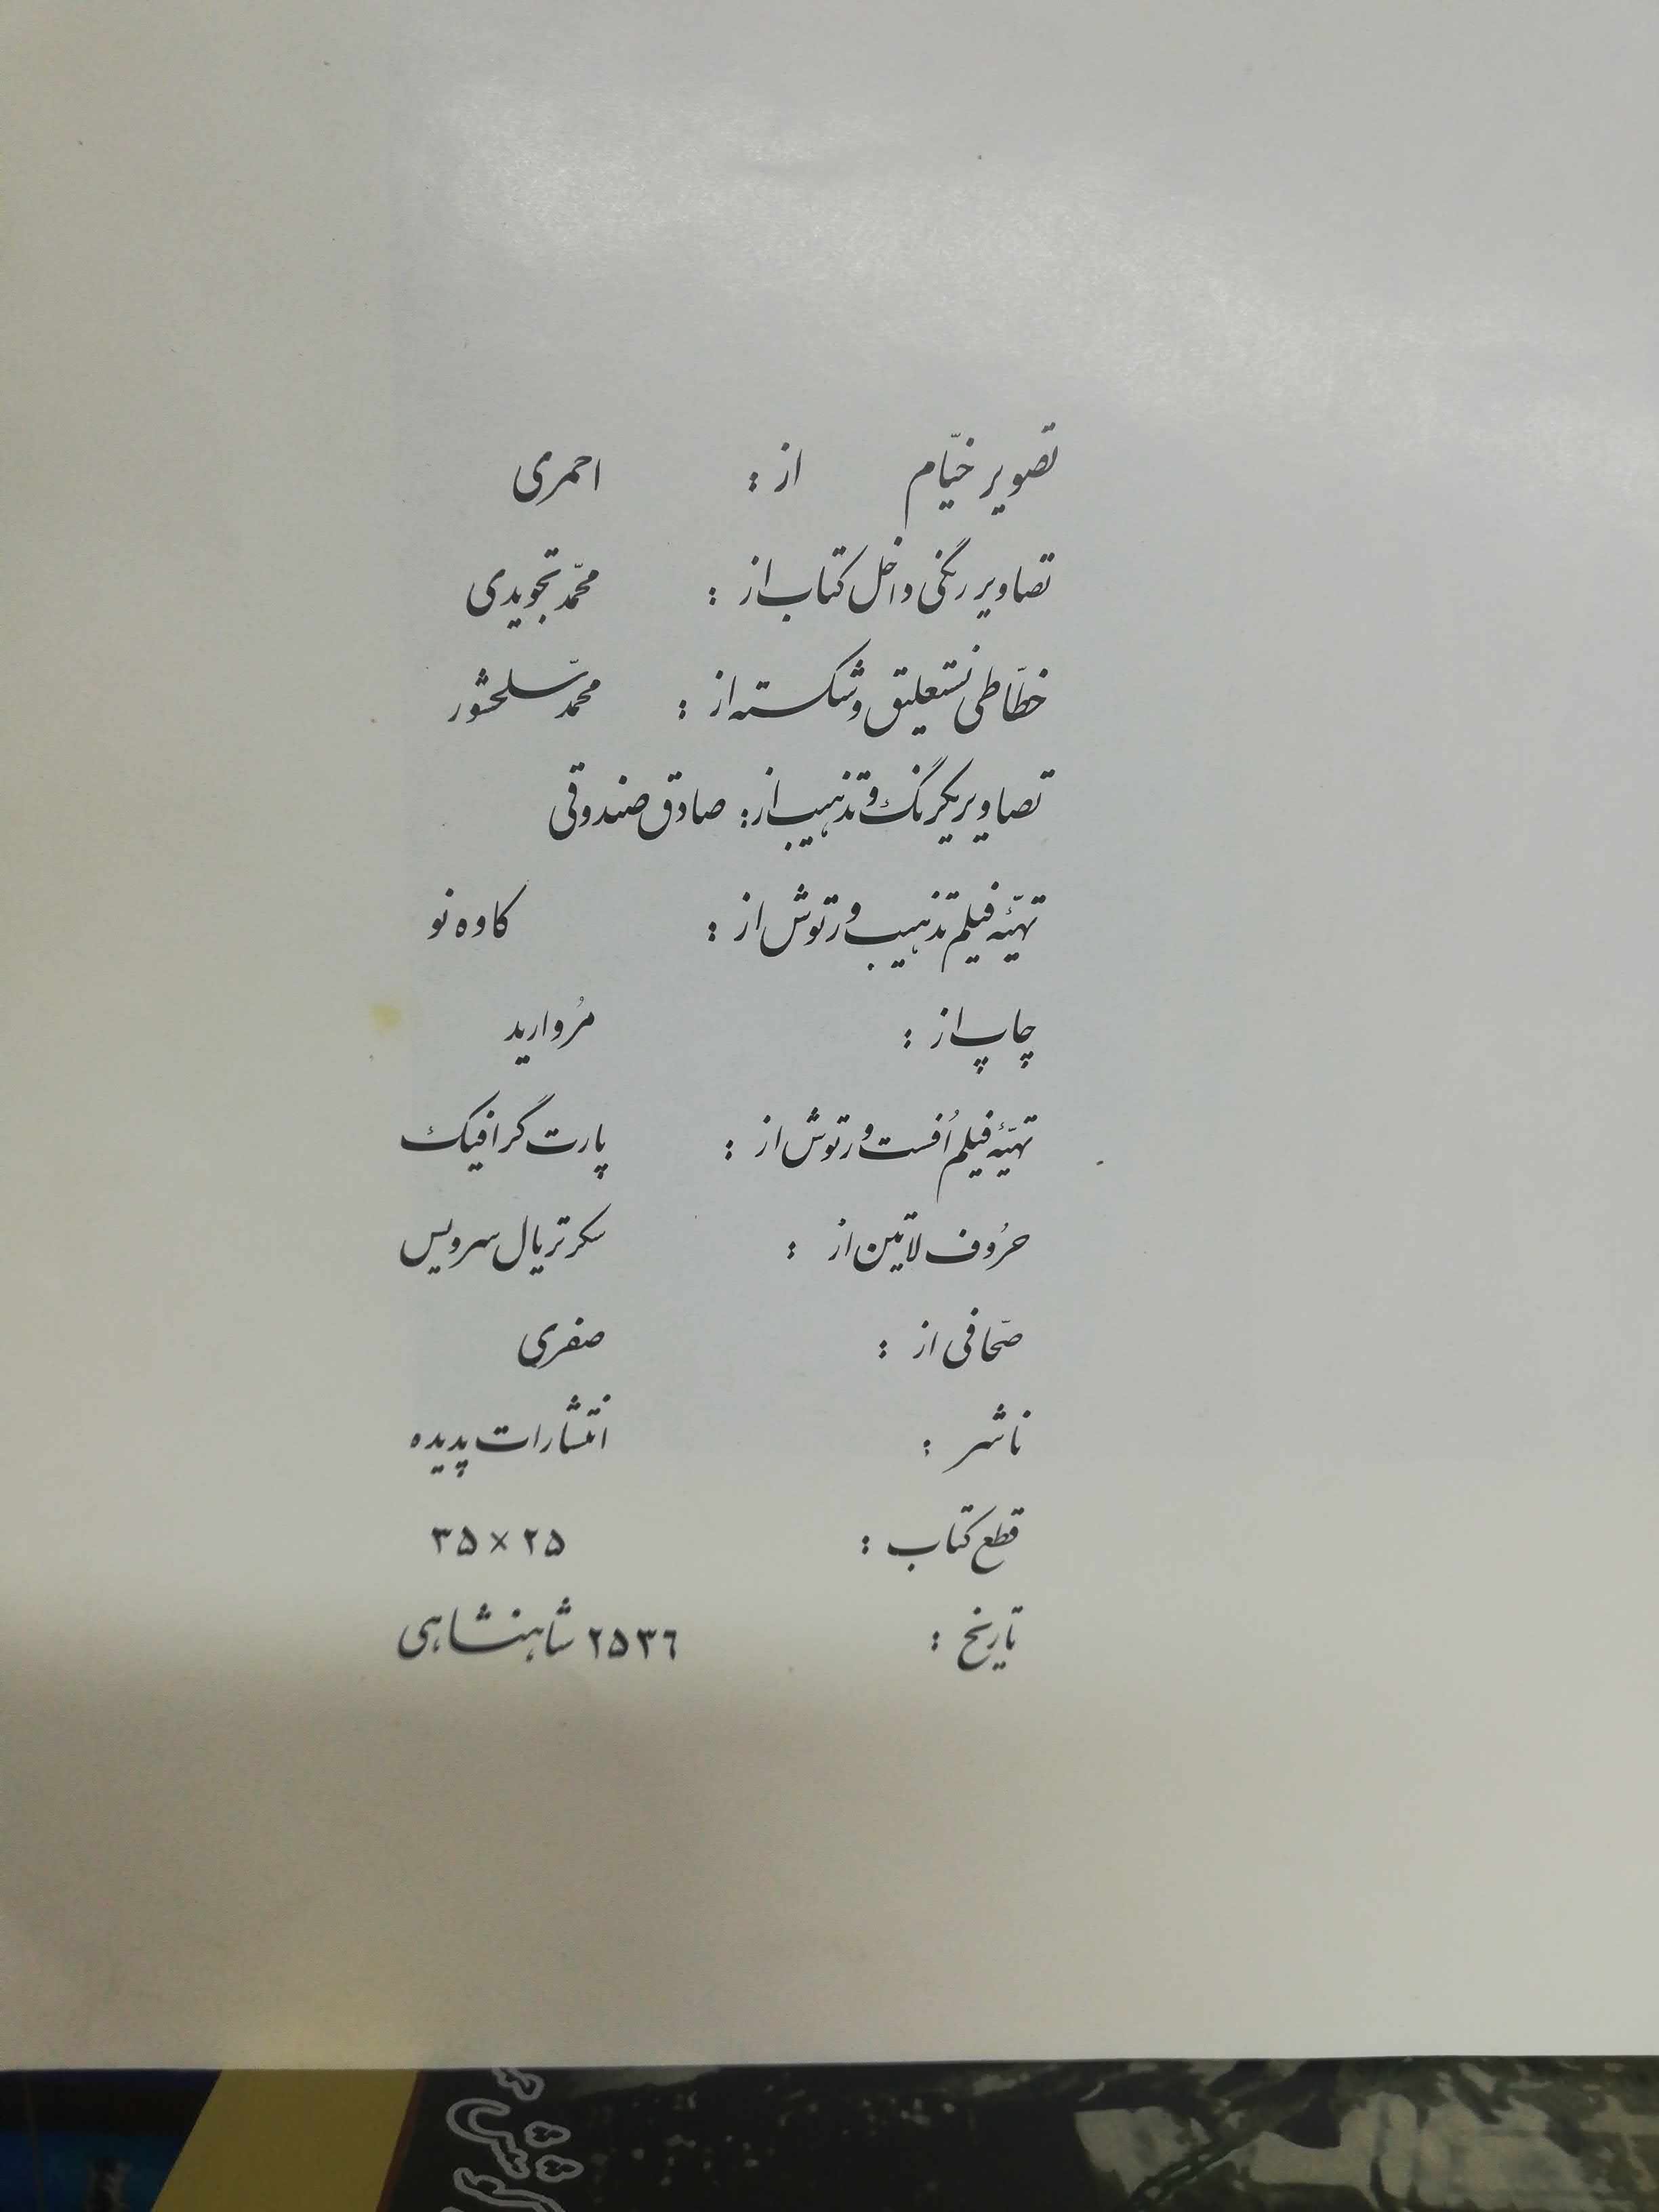 تصویر خیّام از : احمری
تصاویر رنگی داخل کتاب از : محمّد تجویدی
خطّاطی نستعلیق و شکسته از : محمّد سلحشور
تصاویر یکرنگ و تذهیب از : صادق صندوقی
تهیّه فیلم تذهیب و رتوش از : کاوه نو
چاپ از : مُروارید
تهیّه فیلم اُفست و رتوش از : پارت گرافیک
حرُوف لاتین از : سکرتریال سرویس
صحّافی از : صفری
ناشر : انتشارات پدیده
قطع کتاب : ۲۵ × ۳۵
تاریخ : ۲۵۳۶ شاهنشاهی